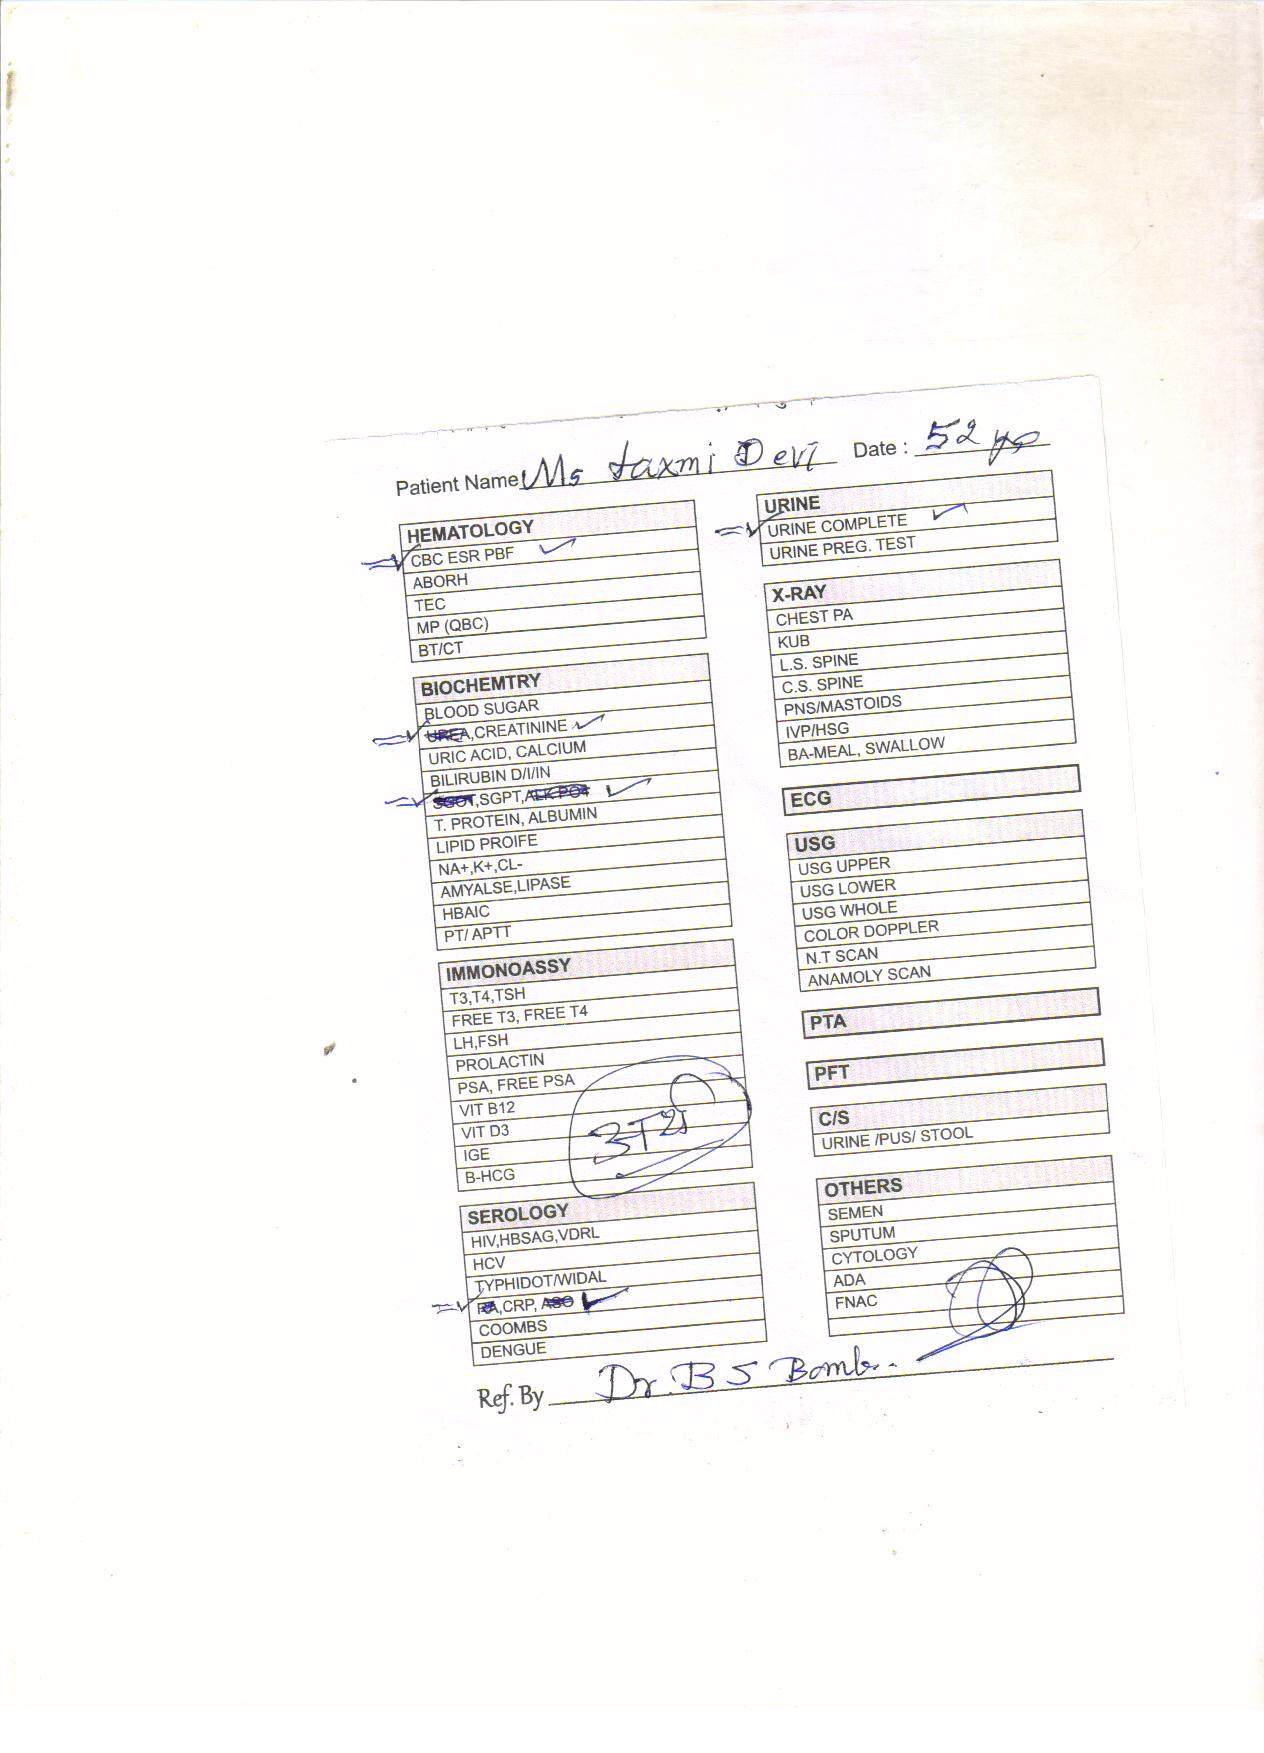 Patient Name Ms Laxmi Devi Date : 52 yrs
HEMATOLOGY
CBC ESR PBF
ABORH
TEC
MP (QBC)
BT/CT
BIOCHEMTRY
BLOOD SUGAR
UREA,CREATININE
URIC ACID, CALCIUM
BILIRUBIN D/I/IN
SGOT,SGPT,ALK PO4
T. PROTEIN, ALBUMIN
LIPID PROIFE
NA+,K+,CL-
AMYALSE,LIPASE
HBAIC
PT/ APTT
IMMONOASSY
T3,T4,TSH
FREE T3, FREE T4
LH,FSH
PROLACTIN
PSA, FREE PSA
VIT B12
VIT D3
IGE
B-HCG
SEROLOGY
HIV,HBSAG,VDRL
HCV
TYPHIDOT/WIDAL
RA,CRP, ASO
COOMBS
DENGUE
URINE
URINE COMPLETE
URINE PREG. TEST
X-RAY
CHEST PA
KUB
L.S. SPINE
C.S. SPINE
PNS/MASTOIDS
IVP/HSG
BA-MEAL, SWALLOW
ECG
USG
USG UPPER
USG LOWER
USG WHOLE
COLOR DOPPLER
N.T SCAN
ANAMOLY SCAN
PTA
PFT
C/S
URINE /PUS/ STOOL
OTHERS
SEMEN
SPUTUM
CYTOLOGY
ADA
FNAC
Ref. By Dr. B S Bomb